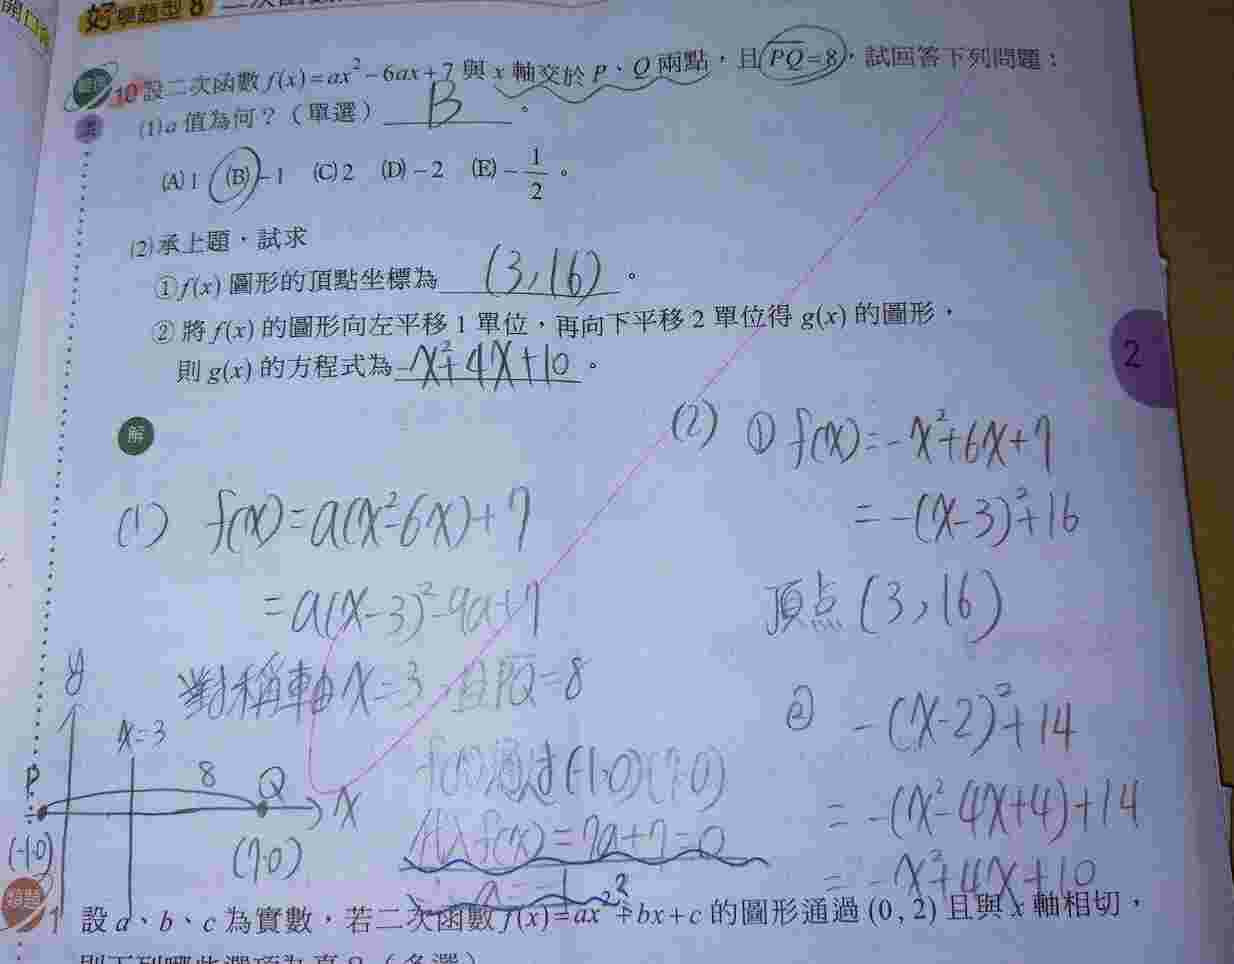 好學題型 8
10 設二次函數 f(x)=ax²−6ax+7 與 x 軸交於 P、Q 兩點，且 PQ=8，試回答下列問題：
(1) a 值為何？（單選） B 。
(A) 1 (B) −1 (C) 2 (D) −2 (E) −1/2 。
(2) 承上題，試求
① f(x) 圖形的頂點坐標為 (3,16) 。
② 將 f(x) 的圖形向左平移 1 單位，再向下平移 2 單位得 g(x) 的圖形，
則 g(x) 的方程式為 −x²+4x+10 。
2
解
(1) f(x)=a(x²−6x)+7
=a(x−3)²−9a+7
對稱軸 x=3 且 PQ=8
f(x) 通过 (−1,0) (7,0)
代入 f(x)=7a+7=0
a=−1
y
x=3
P
8
Q
x
(−1,0)
(7,0)
(2) ① f(x)=−x²+6x+7
=−(x−3)²+16
頂点 (3,16)
② −(x−2)²+14
=−(x²−4x+4)+14
=−x²+4x+10
類題
1 設 a、b、c 為實數，若二次函數 f(x)=ax²+bx+c 的圖形通過 (0,2) 且與 x 軸相切，